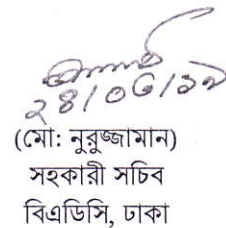 ২৪/০৬/১৯
(মো: নুরুজ্জামান)
সহকারী সচিব
বিএডিসি, ঢাকা